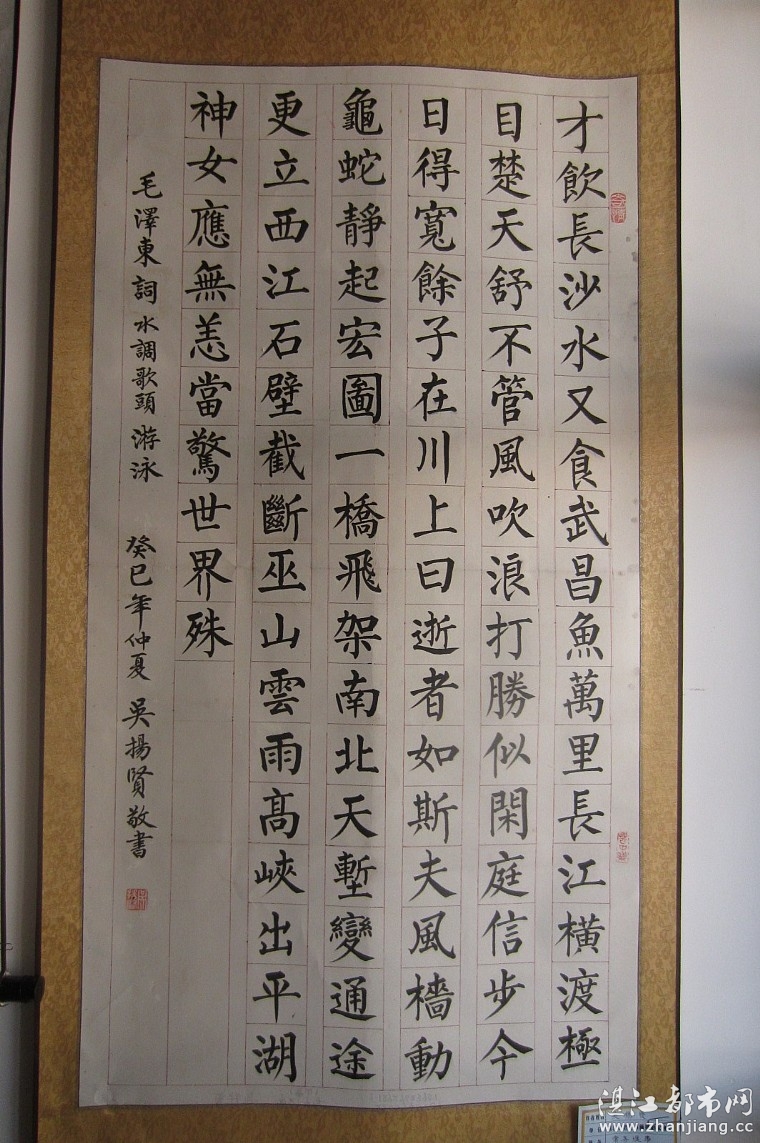 才飲長沙水又食武昌魚萬里長江橫渡極
目楚天舒不管風吹浪打勝似閑庭信步今
日得寬餘子在川上曰逝者如斯夫風檣動
龜蛇靜起宏圖一橋飛架南北天塹變通途
更立西江石壁截斷巫山雲雨高峽出平湖
神女應無恙當驚世界殊
毛澤東詞水調歌頭游泳 癸巳年仲夏吳揚賢敬書
湛江都市网
www.zhanjiang.cc